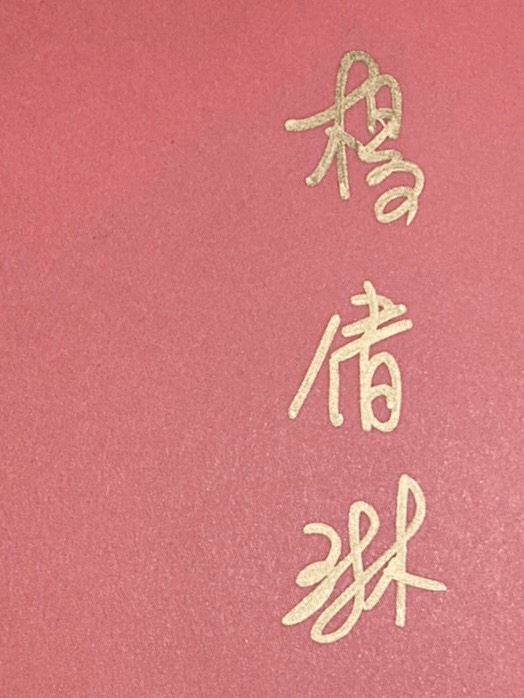 楊倩琳